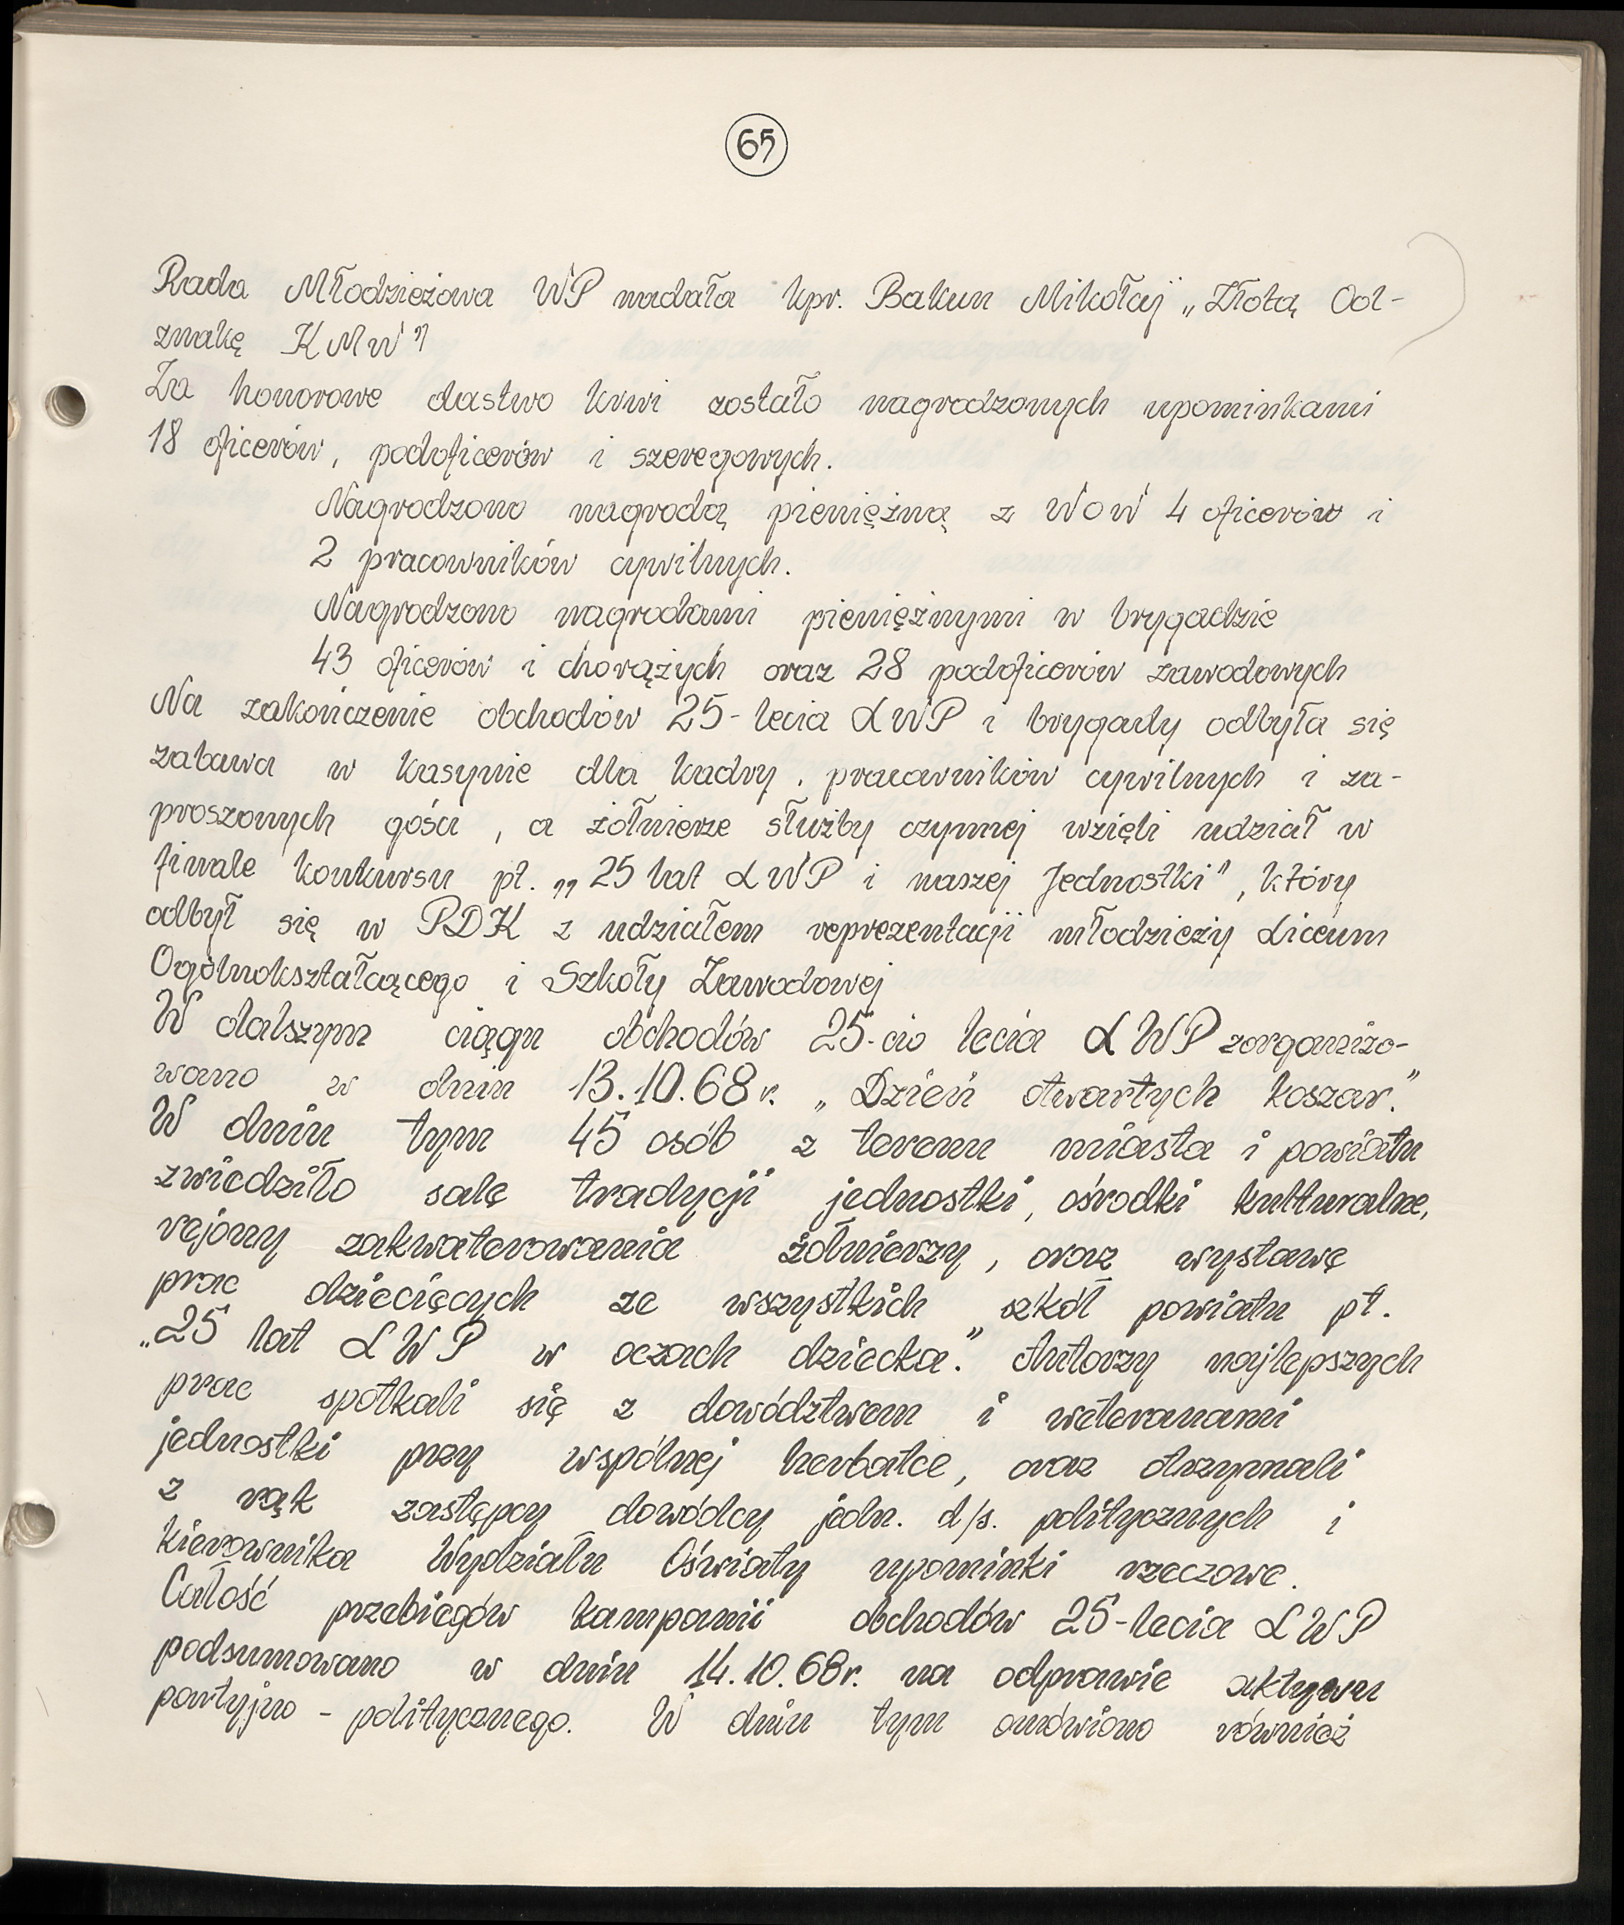 65
Rada Młodzieżowa WP nadała kpr. Bakun Mikołaj „Złotą Od-
znakę KMW"
Za honorowe dastwo krwi zostało nagrodzonych upominkami
18 oficerów, podoficerów i szeregowych.
Nagrodzono nagrodą pieniężną z WOW 4 oficerów i
2 pracowników cywilnych.
Nagrodzono nagrodami pieniężnymi w brygadzie
43 oficerów i chorążych oraz 28 podoficerów zawodowych
Na zakończenie obchodów 25-lecia LWP i brygady odbyła się
zabawa w kasynie dla kadry, pracowników cywilnych i za-
proszonych gości, a żołnierze służby czynnej wzięli udział w
finale konkursu pt. „25 lat LWP i naszej Jednostki", który
odbył się w PDK z udziałem reprezentacji młodzieży Liceum
Ogólnokształcącego i Szkoły Zawodowej
W dalszym ciągu obchodów 25-cio lecia LWP zorganizo-
wano w dniu 13.10.68 r. „Dzień otwartych koszar."
W dniu tym 45 osób z terenu miasta i powiatu
zwiedziło salę tradycji jednostki, ośrodki kulturalne,
rejony zakwaterowania żołnierzy, oraz wystawę
prac dziecięcych ze wszystkich szkół powiatu pt.
„25 lat LWP w oczach dziecka." Autorzy najlepszych
prac spotkali się z dowództwem i weteranami
jednostki przy wspólnej herbatce, oraz otrzymali
z rąk zastępcy dowódcy jedn. d/s. politycznych i
kierownika Wydziału Oświaty upominki rzeczowe.
Całość przebiegów kampanii obchodów 25-lecia LWP
podsumowano w dniu 14.10.68r. na odprawie aktywu
partyjno - politycznego. W dniu tym omówiono również